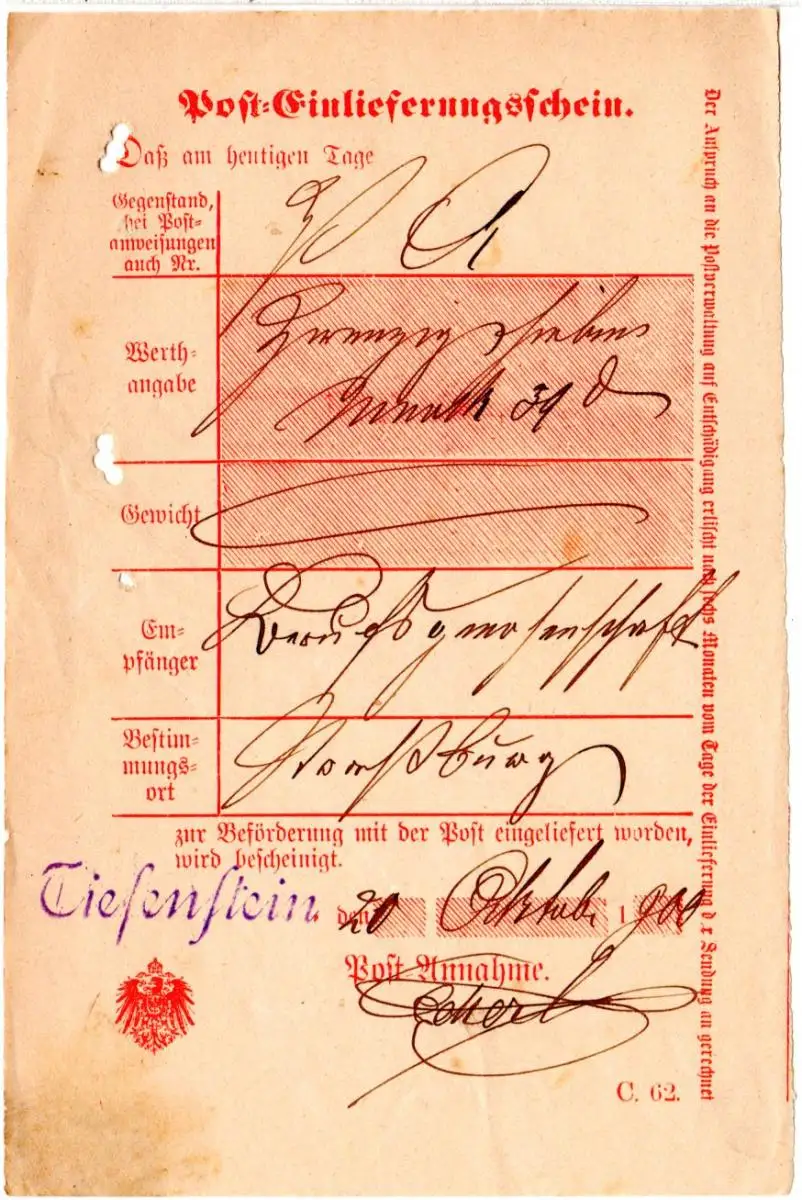 Post-Einlieferungsschein.
Daß am heutigen Tage
Gegenstand,
bei Post-
anweisungen
auch Nr.
Werth-
angabe
Mark 39 d
Gewicht
Em-
pfänger
Berufsgenossenschaft
Bestim-
mungs-
ort
zur Beförderung mit der Post eingeliefert worden,
wird bescheinigt.
Tiefenstein. den 20 Oktob. 1900
Post Annahme.
C. 62.
Der Anspruch an die Postverwaltung auf Entschädigung erlischt nach sechs Monaten vom Tage der Einlieferung der Sendung an gerechnet